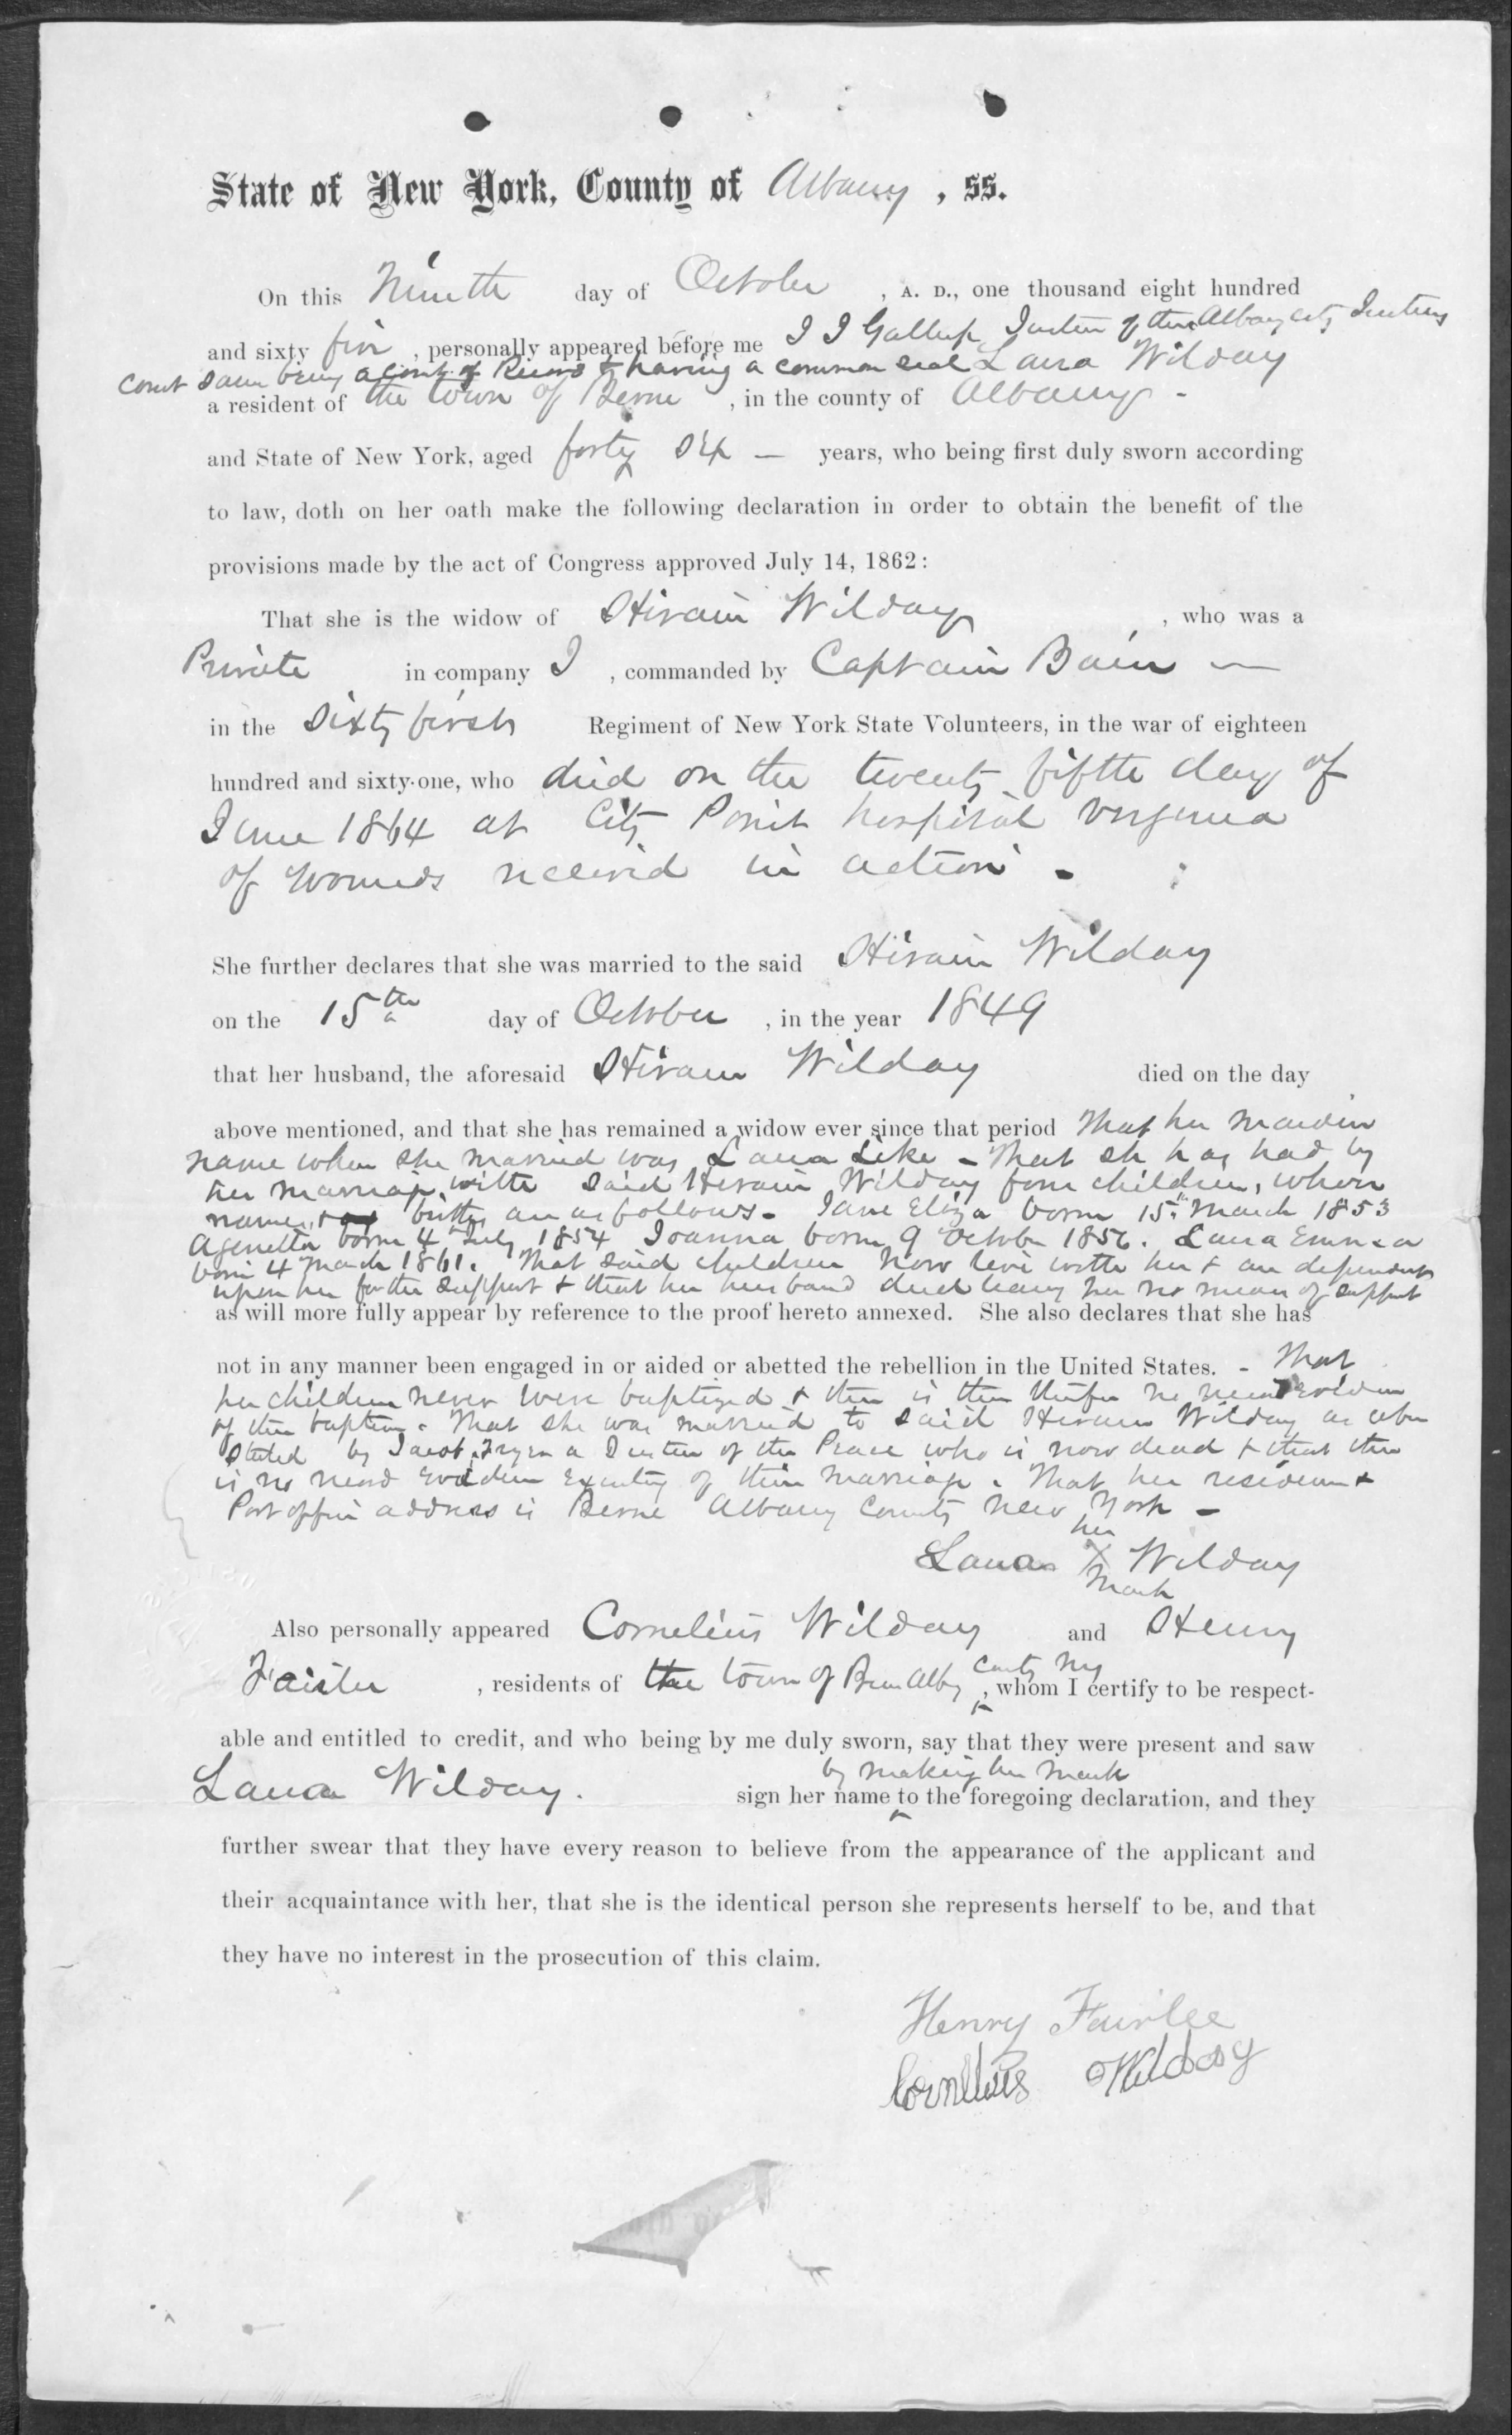 State of New York, County of Albany, ss.
On this Nineth day of October, A. D., one thousand eight hundred
and sixty five, personally appeared before me I J Gallup, Justice of the Albany City Justices
Court same being a Court of Record & having a common seal Laura Wilday
a resident of the town of Berne, in the county of Albany -
and State of New York, aged forty six — years, who being first duly sworn according
to law, doth on her oath make the following declaration in order to obtain the benefit of the
provisions made by the act of Congress approved July 14, 1862:
That she is the widow of Hiram Wilday, who was a
Private in company I, commanded by Captain Bain —
in the Sixty first Regiment of New York State Volunteers, in the war of eighteen
hundred and sixty-one, who died on the twenty fifth day of
June 1864 at City Point hospital Virginia
of wounds received in action -
She further declares that she was married to the said Hiram Wilday
on the 15th day of October, in the year 1849
that her husband, the aforesaid Hiram Wilday died on the day
above mentioned, and that she has remained a widow ever since that period That her maiden
name when she married was Laura Like - That sh has had by
her marriage with said Hiram Wilday four children, whose
names & births are as follows - Jane Eliza born 15th March 1853
Agenetta born 4th July 1854 Joanna born 9 October 1856. Laura Emma
born 4 March 1861. That said children now live with her & are dependent
upon her for their support & that her husband died leaving her no means of support
as will more fully appear by reference to the proof hereto annexed. She also declares that she has
not in any manner been engaged in or aided or abetted the rebellion in the United States. - That
her children never were baptized & there is therefore no record evidence
of their baptism. That she was married to said Hiram Wilday as above
stated by Jacob a Justice of the Peace who is now dead & that there
is no record evidence existing of their marriage. That her residence &
Post office address is Berne Albany County New York -
her
Laura X Wilday
mark
Also personally appeared Cornelius Wilday and Henry
, residents of the town of Berne Albany County NY, whom I certify to be respect-
able and entitled to credit, and who being by me duly sworn, say that they were present and saw
Laura Wilday. by making her mark
sign her name to the foregoing declaration, and they
further swear that they have every reason to believe from the appearance of the applicant and
their acquaintance with her, that she is the identical person she represents herself to be, and that
they have no interest in the prosecution of this claim.
Henry Fairlee
Cornelius Wilday